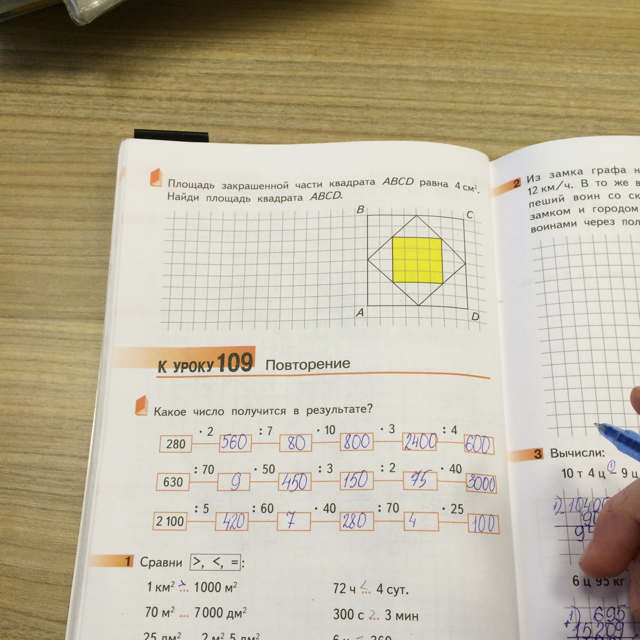 Площадь закрашенной части квадрата ABCD равна 4 см².
Найди площадь квадрата ABCD.
B C
A D
К УРОКУ 109 Повторение
Какое число получится в результате?
· 2 : 7 · 10 · 3 : 4
280 560 80 800 2400 600
: 70 · 50 : 3 : 2 · 40
630 9 450 150 75 3000
: 5 : 60 · 40 : 70 · 25
2 100 420 7 280 4 100
1 Сравни >, <, = :
1 км² > 1000 м² 72 ч < 4 сут.
70 м ... 7 000 дм² 300 с > 3 мин
25 дм² 2 м² 5 дм²
2 Из замка графа н
12 км/ч. В то же в
пеший воин со ск
замком и городом
воинами через пол
3 Вычисли:
10 т 4 ц − 9 ц
6 ц 95 кг
695